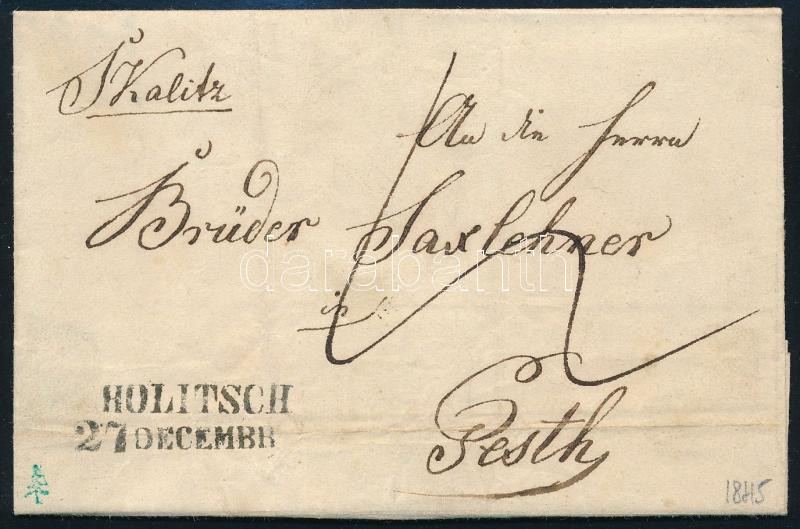 Skalitz
An die Herrn
Brüder Saxlehner
in
Pesth
HOLITSCH
27 DECEMBR
1845
darabanth